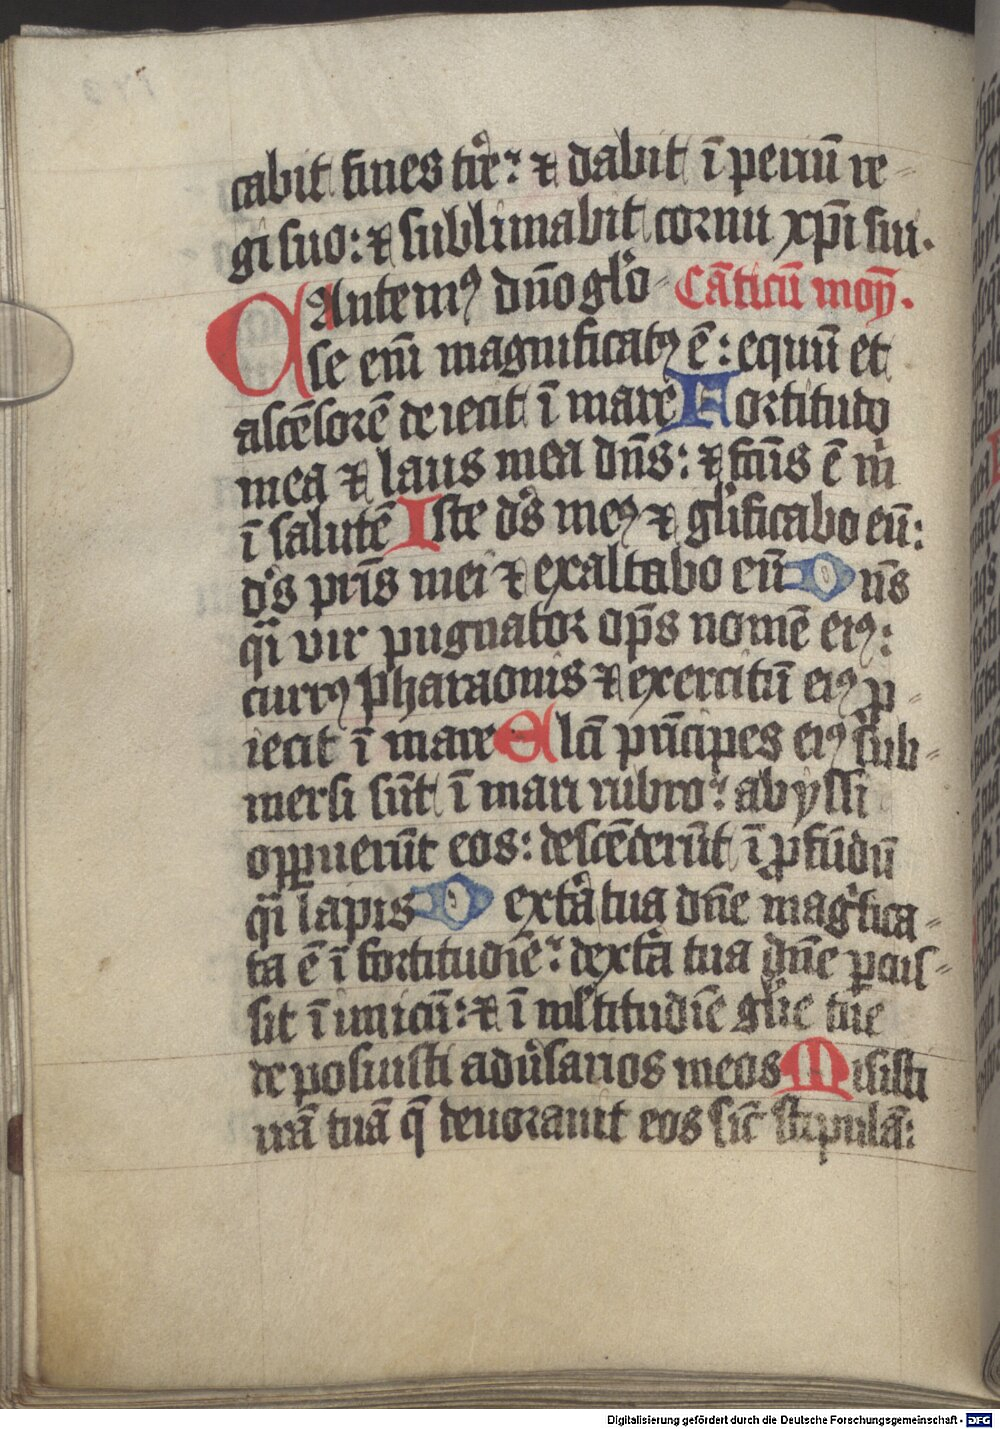 cabit fines tr̄e: ⁊ dabit ī periū re-
gi suo: ⁊ sublimabit cornu xp̄i sui.
Cantemꝰ dn̄o glo- Cāticū moȳ.
se eni̅ magnificatꝰ ē: equū et
ascēsorē deiecit ī mare Fortitudo
mea ⁊ laus mea dn̄s: ⁊ f̄cus ē m̄
ī salutē Iste ds̄ meꝰ ⁊ glīficabo eū:
ds̄ pr̄is mei ⁊ exaltabo eū Dn̄s
qi̅ vir pugnator op̄s nomē eiꝰ:
currꝰ pharaonis ⁊ exercitū eiꝰ ꝓ-
iecit ī mare Elc̄i prīcipes eiꝰ sub-
mersi sūt ī mari rubro: abyssi
oꝑuerūt eos: descēderūt ī ꝓfūdū
qi̅ lapis Dextā tua dn̄e mag̅fica-
ta ē ī fortitudīe: dextā tua dn̄e ꝑcus-
sit īimicū: ⁊ ī ml̄titudīe gl̄ie tue
deposuisti adūsarios meos Misisti
irā tuā q̄ deuorauit eos sic̄ stipulā:
Digitalisierung gefördert durch die Deutsche Forschungsgemeinschaft - DFG